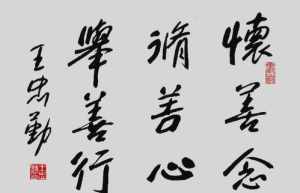 懷善念
脩善心
舉善行
王忠勤